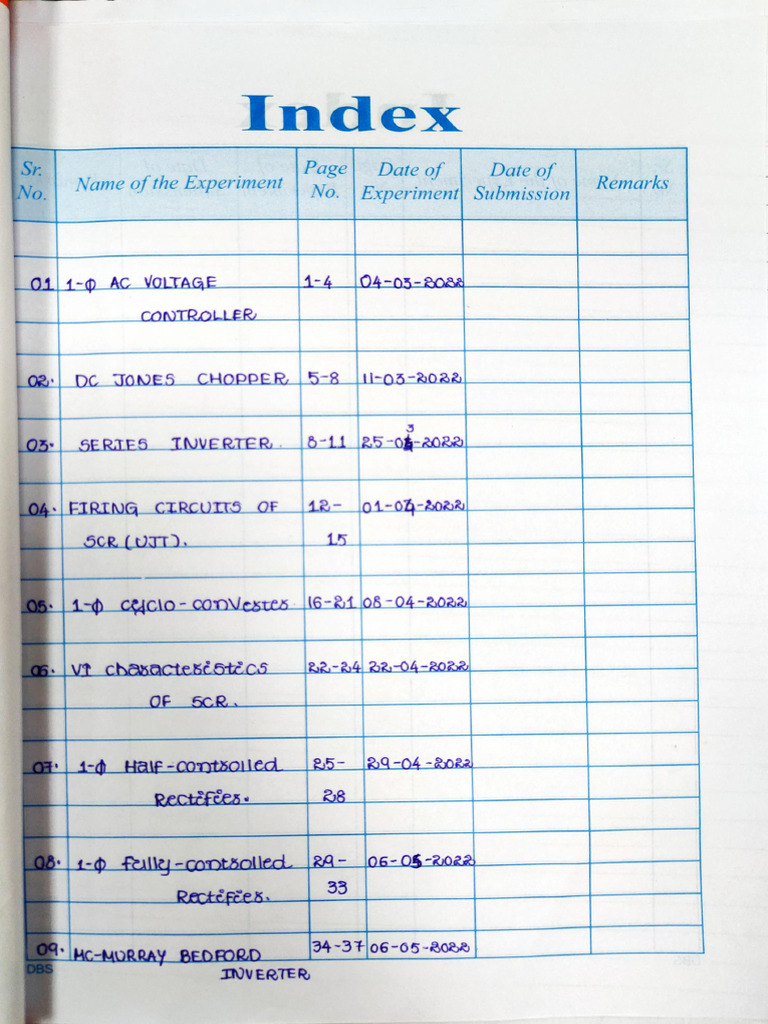 Index
Sr. No. Name of the Experiment Page No. Date of Experiment Date of Submission Remarks
01 1-Φ AC VOLTAGE 1-4 04-03-2022
CONTROLLER
02. DC JONES CHOPPER 5-8 11-03-2022
03. SERIES INVERTER. 8-11 25-03-2022
04. FIRING CIRCUITS OF 12- 01-04-2022
SCR (UJT). 15
05. 1-Φ cyclo-converter 16-21 08-04-2022
06. VI characteristics 22-24 22-04-2022
OF SCR.
07. 1-Φ Half-controlled 25- 29-04-2022
Rectifier. 28
08. 1-Φ fully-controlled 29- 06-05-2022
Rectifier. 33
09. MC-MURRAY BEDFORD 34-37 06-05-2022
INVERTER
DBS